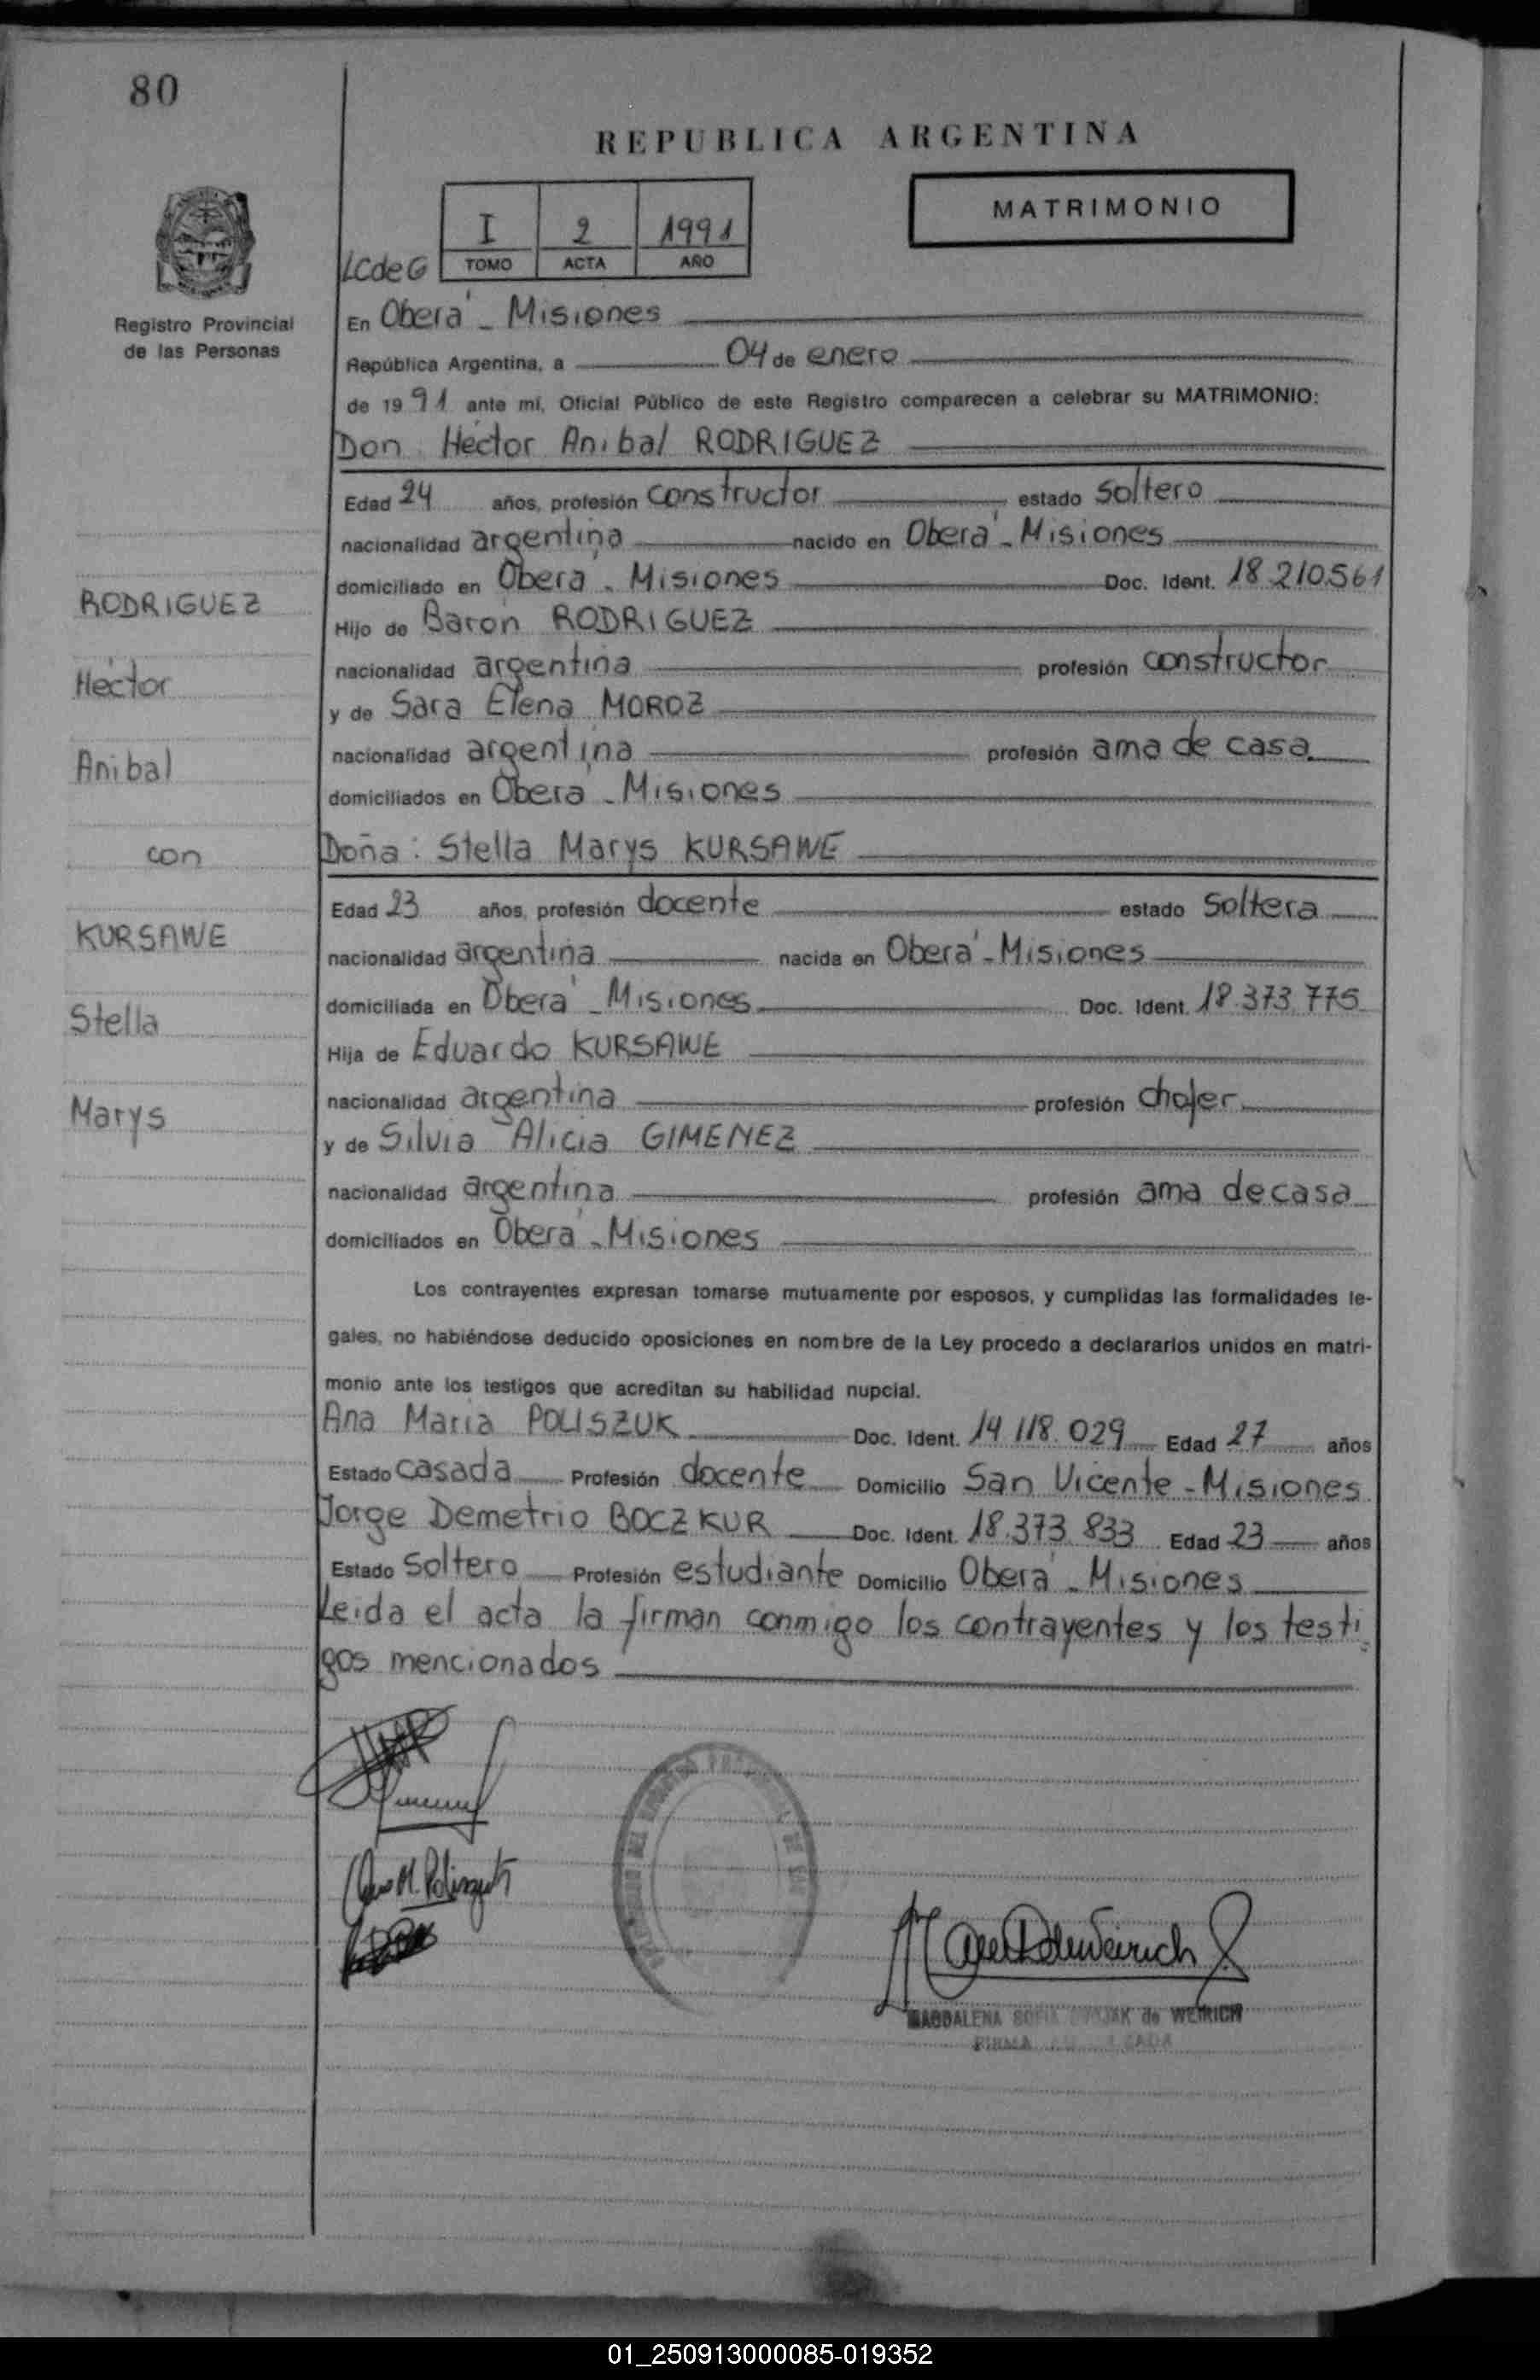 80
REPUBLICA ARGENTINA
MATRIMONIO
I 2 1991
LCdeG TOMO ACTA AÑO
Registro Provincial
de las Personas
En Oberá - Misiones
República Argentina, a 04 de enero
de 1991 ante mí, Oficial Público de este Registro comparecen a celebrar su MATRIMONIO:
Don: Héctor Anibal RODRIGUEZ
Edad 24 años, profesión constructor estado soltero
nacionalidad argentina nacido en Oberá - Misiones
domiciliado en Oberá - Misiones Doc. Ident. 18.210.561
Hijo de Baron RODRIGUEZ
nacionalidad argentina profesión constructor
y de Sara Elena MOROZ
nacionalidad argentina profesión ama de casa
domiciliados en Oberá - Misiones
Doña: Stella Marys KURSAWE
Edad 23 años, profesión docente estado soltera
nacionalidad argentina nacida en Oberá - Misiones
domiciliada en Oberá - Misiones Doc. Ident. 18.373.775
Hija de Eduardo KURSAWE
nacionalidad argentina profesión chofer
y de Silvia Alicia GIMENEZ
nacionalidad argentina profesión ama de casa
domiciliados en Oberá - Misiones
RODRIGUEZ
Héctor
Anibal
con
KURSAWE
Stella
Marys
Los contrayentes expresan tomarse mutuamente por esposos, y cumplidas las formalidades le-
gales, no habiéndose deducido oposiciones en nombre de la Ley procedo a declararlos unidos en matri-
monio ante los testigos que acreditan su habilidad nupcial.
Ana Maria POLISZUK Doc. Ident. 14.118.029 Edad 27 años
Estado casada Profesión docente Domicilio San Vicente - Misiones
Jorge Demetrio BOCZKUR Doc. Ident. 18.373.833 Edad 23 años
Estado soltero Profesión estudiante Domicilio Oberá - Misiones
Leida el acta la firman conmigo los contrayentes y los testi
gos mencionados
MAGDALENA SOFIA de WEIRICH
FIRMA
01_250913000085-019352